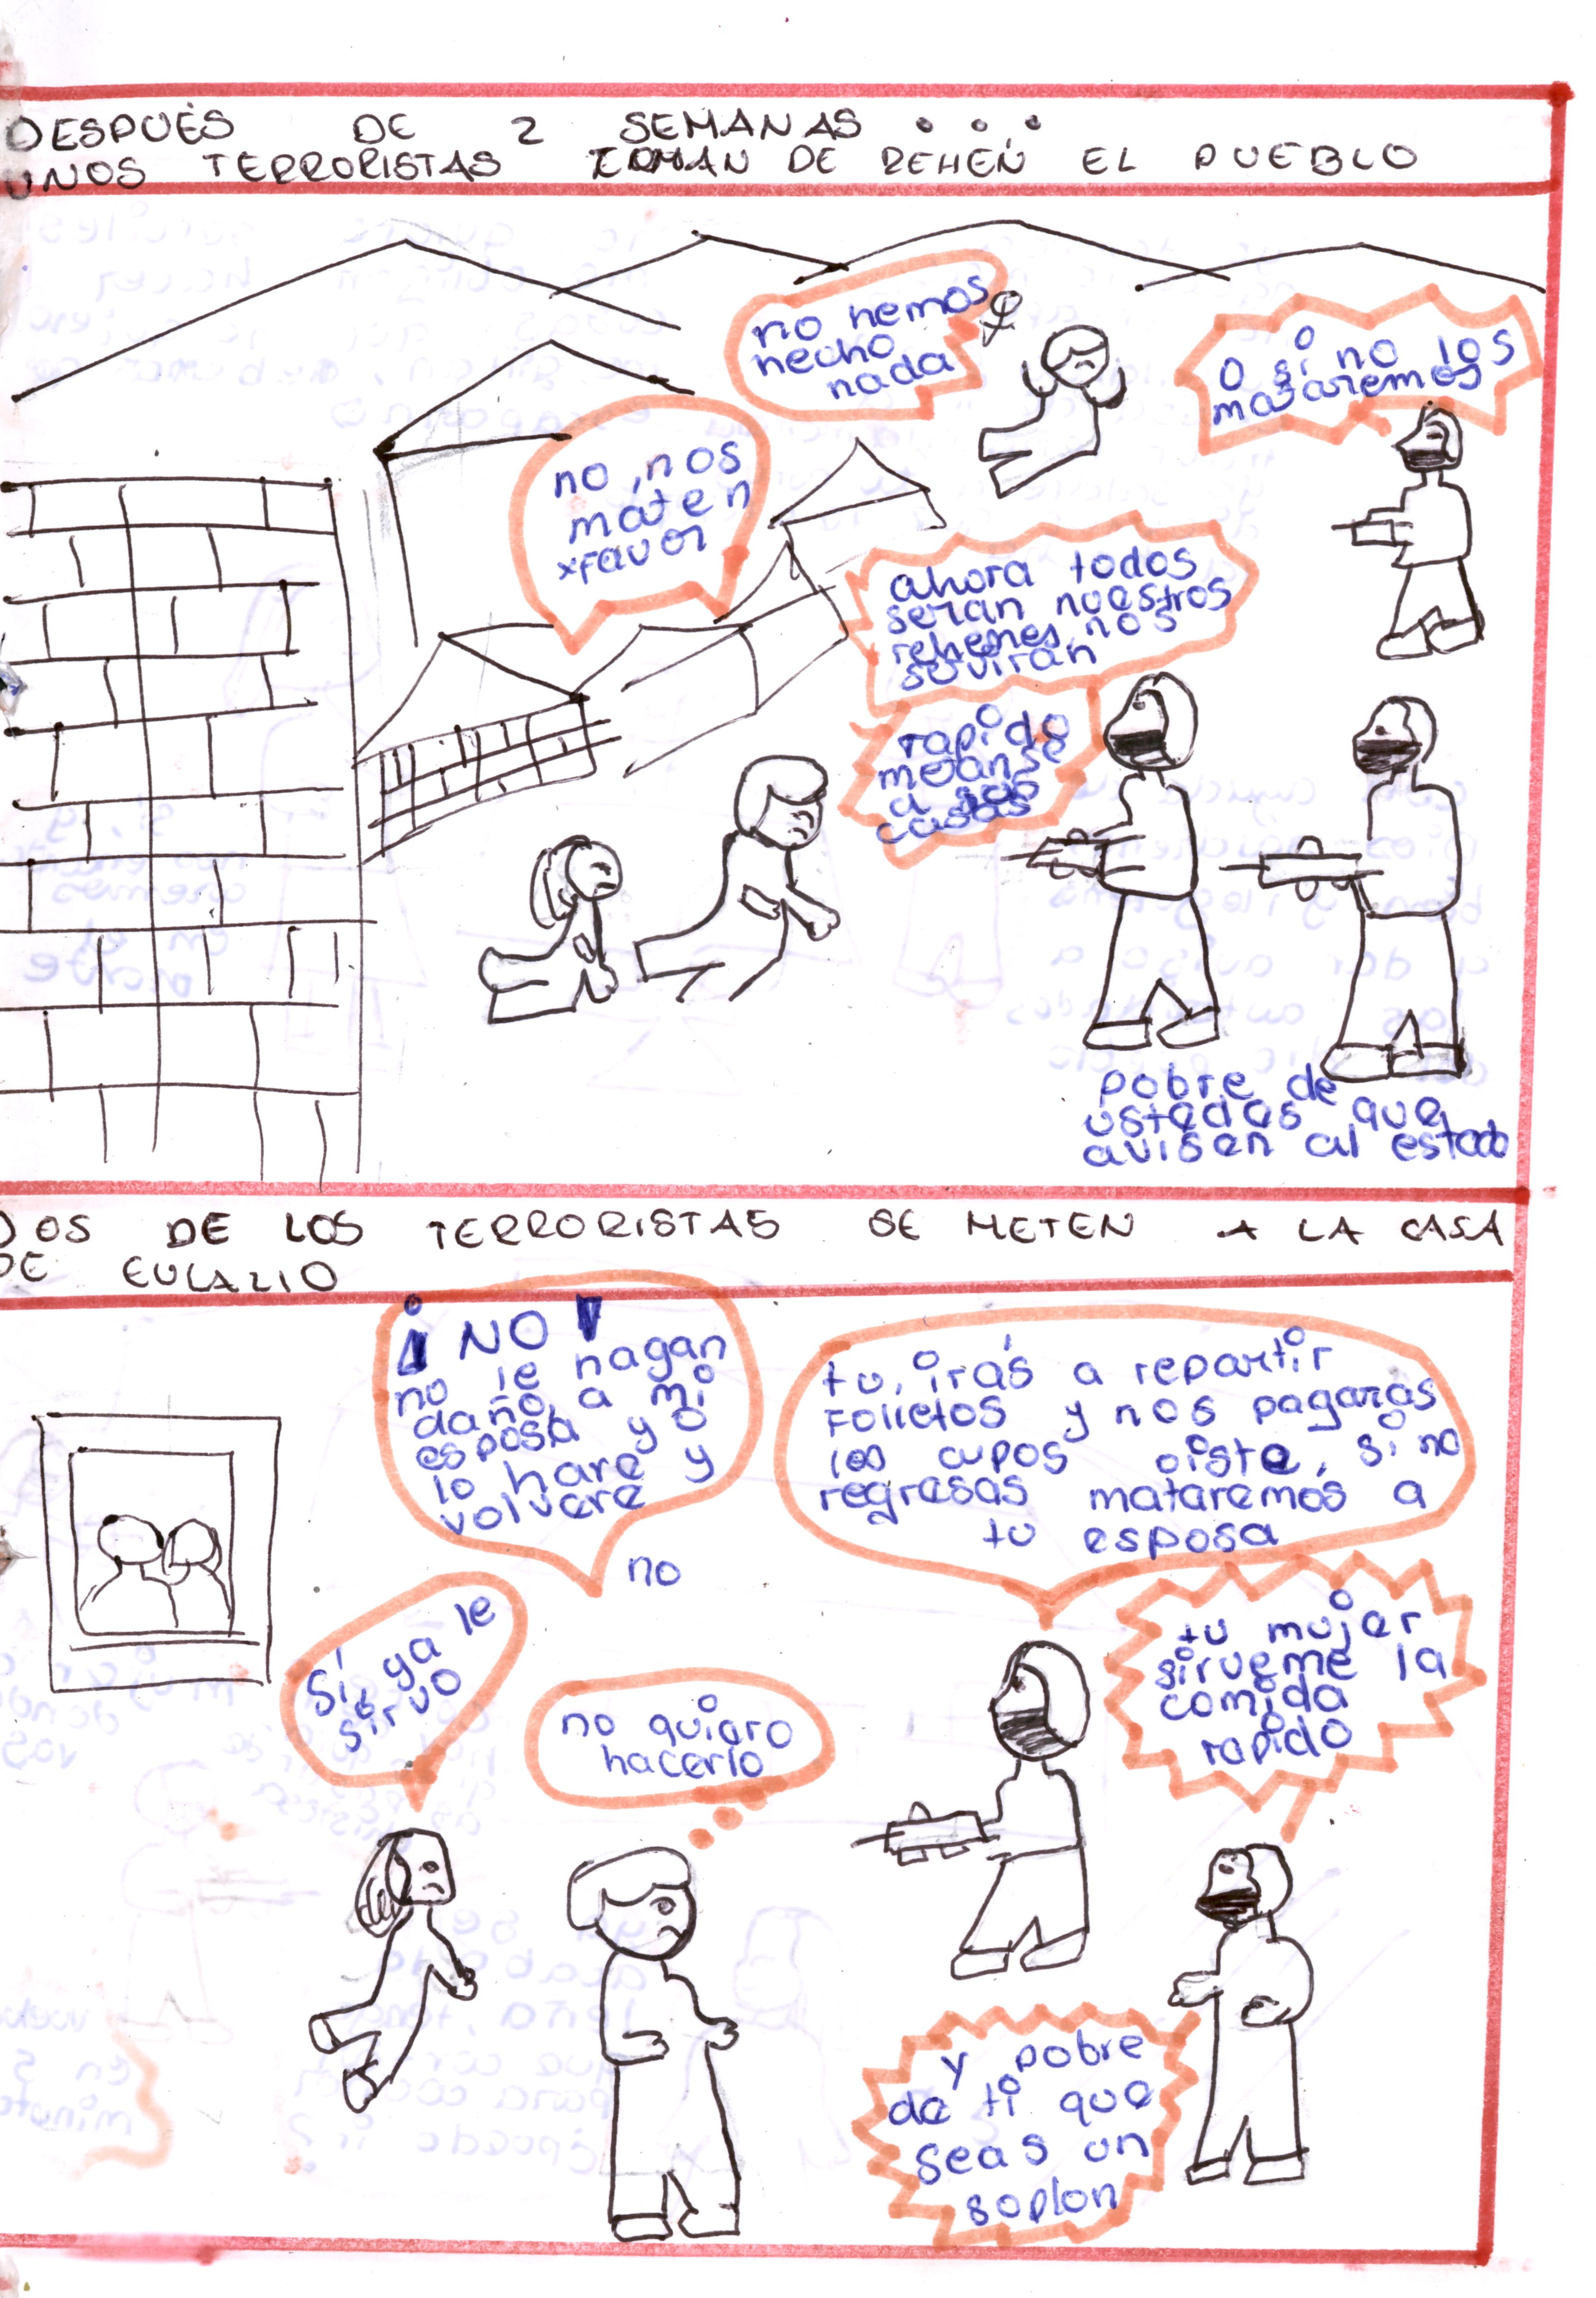 DESPUÉS DE 2 SEMANAS . . .
UNOS TERRORISTAS TOMAN DE REHEN EL PUEBLO
no hemos
hecho
nada
O si no los
mataremos
no nos
maten
xfavor
ahora todos
seran nuestros
rehenes, nos
serviran
rapido
metanse
a sus
casas
pobre de
ustedes que
avisen al estado
DOS DE LOS TERRORISTAS SE METEN A LA CASA
DE EULALIO
¡NO!
no le hagan
daño, a mi
esposa yo
lo hare y
volvere
no
tu, irás a repartir
Folletos y nos pagarás
los cupos oiste, si no
regresas mataremos a
tu esposa
Sí ya le
sirvo
no quiero
hacerlo
tu mujer
sirveme la
comida
rapido
y pobre
de ti que
seas un
soplon